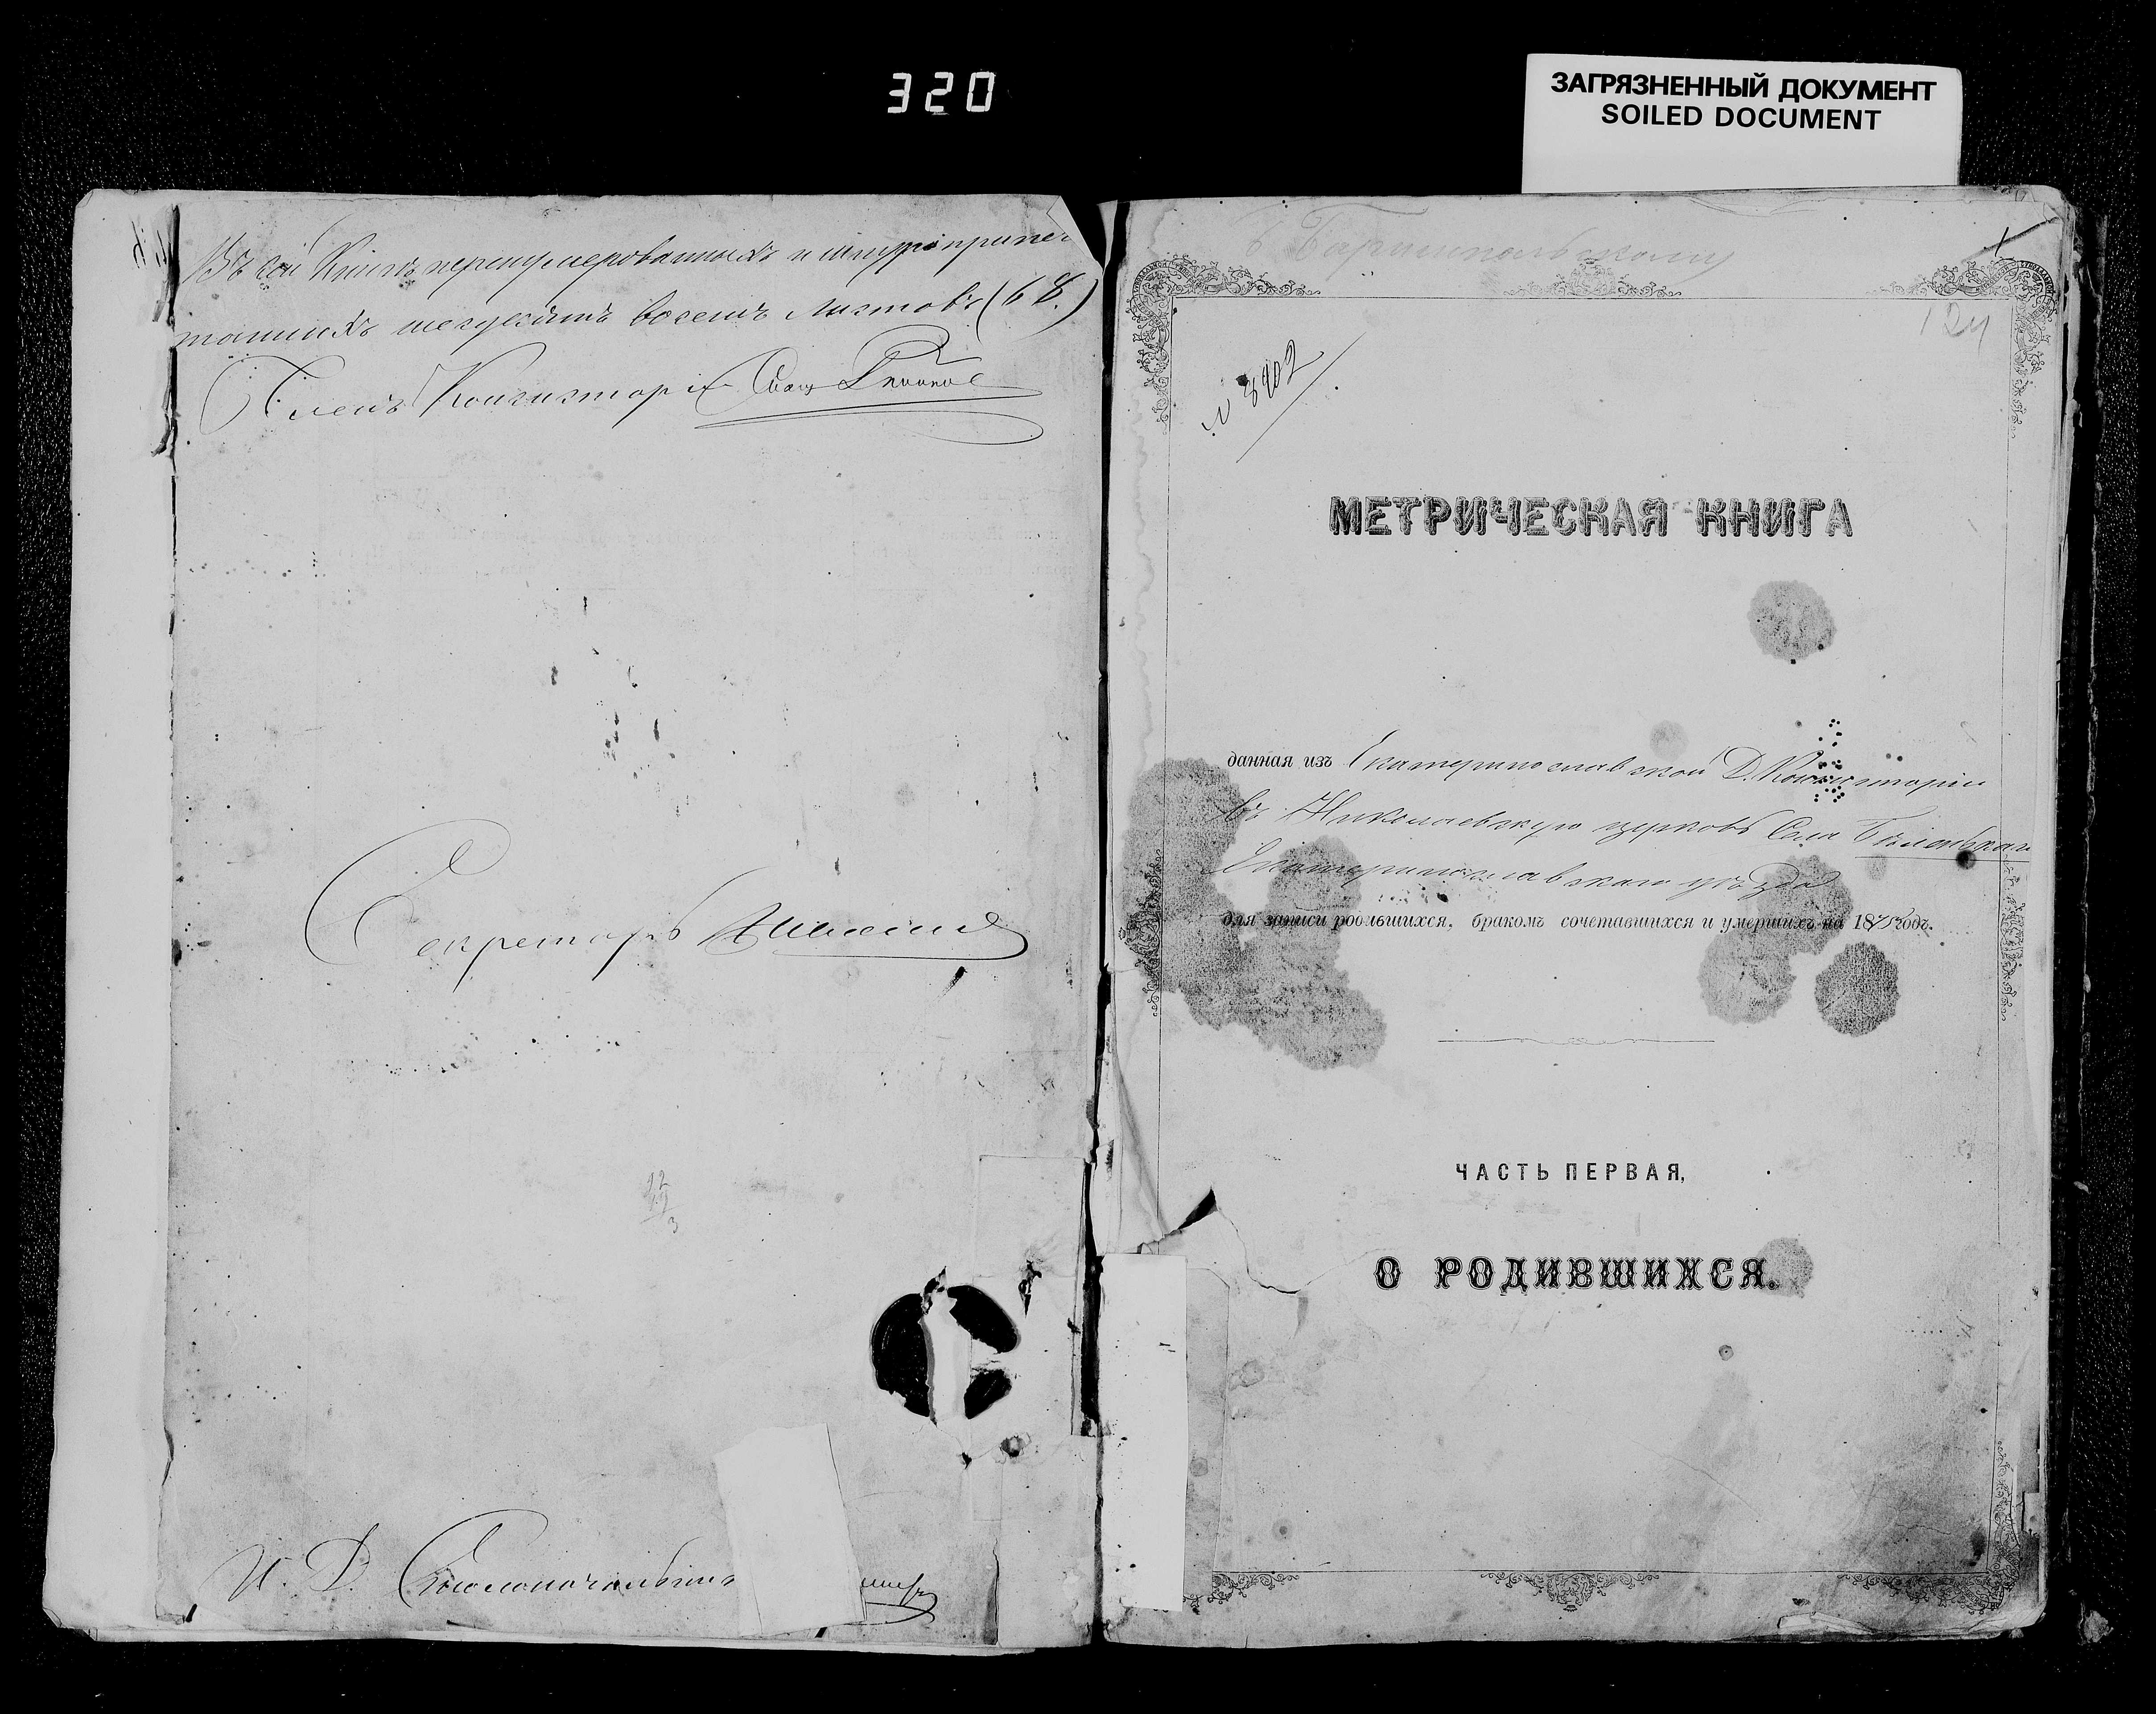 320
ЗАГРЯЗНЕННЫЙ ДОКУМЕНТ
SOILED DOCUMENT
Въ сей Книгѣ перенумерованныхъ и шнуроприпеча
танныхъ шесдесятъ восемь листовъ (68.)
Членъ Консисторіи Свящ
Секретарь
И. Д. Столоначальника
124
№ 8902
МЕТРИЧЕСКАЯ КНИГА
данная изъ Екатеринославской Д. Консисторіи
въ Николаевскую церковь Села Бѣленькаго
Екатеринославскаго уѣзда
для записи родившихся, бракомъ сочетавшихся и умершихъ на 1875 годъ.
ЧАСТЬ ПЕРВАЯ,
О РОДИВШИХСЯ.